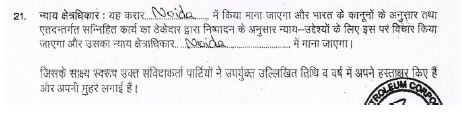 21. न्याय क्षेत्रधिकार : यह करार...Noida...... में किया माना जाएगा और भारत के कानूनों के अनुसार तथा
एतदन्तर्गत सन्निहित कार्य का ठेकेदार द्वारा निष्पादन के अनुसार न्याय–उद्देश्यों के लिए इस पर विचार किया
जाएगा और उसका न्याय क्षेत्राधिकार...Noida............ में माना जाएगा।
जिसके साक्ष्य स्वरूप उक्त संविदाकर्ता पार्टियों ने उपर्युक्त उल्लिखित तिथि व वर्ष में अपने हस्ताक्षर किए हैं
और अपनी मुहरें लगाई हैं।
TROLEUM CORPO